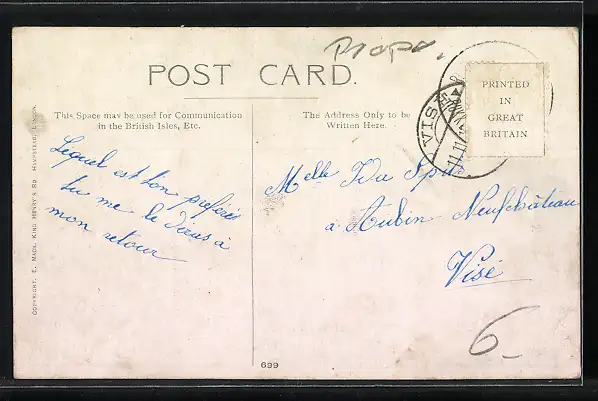 Propr.
POST CARD.
PRINTED
IN
GREAT
BRITAIN
This Space may be used for Communication
in the British Isles, Etc.
The Address Only to be
Written Here.
VISÉ
11 11
Lequel est ton préféré
tu me le diras à
mon retour
Melle Ida
à Aubin Neufchâteau
Visé
6-
699
COPYRIGHT. E. MACK, KING HENRY'S RD. HAMPSTEAD, LONDON.